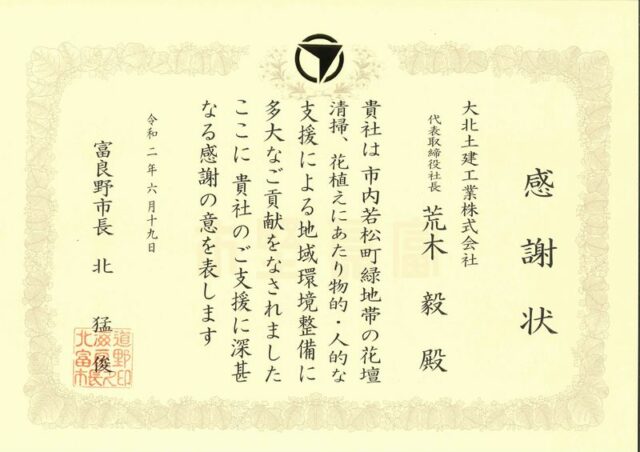 感謝状
大北土建工業株式会社
代表取締役社長 荒木 毅 殿
貴社は 市内若松町緑地帯の花壇
清掃、花植えにあたり物的・人的な
支援による地域環境整備に
多大なご貢献をなされました
ここに 貴社のご支援に深甚
なる感謝の意を表します
令和二年六月十九日
富良野市長 北 猛俊